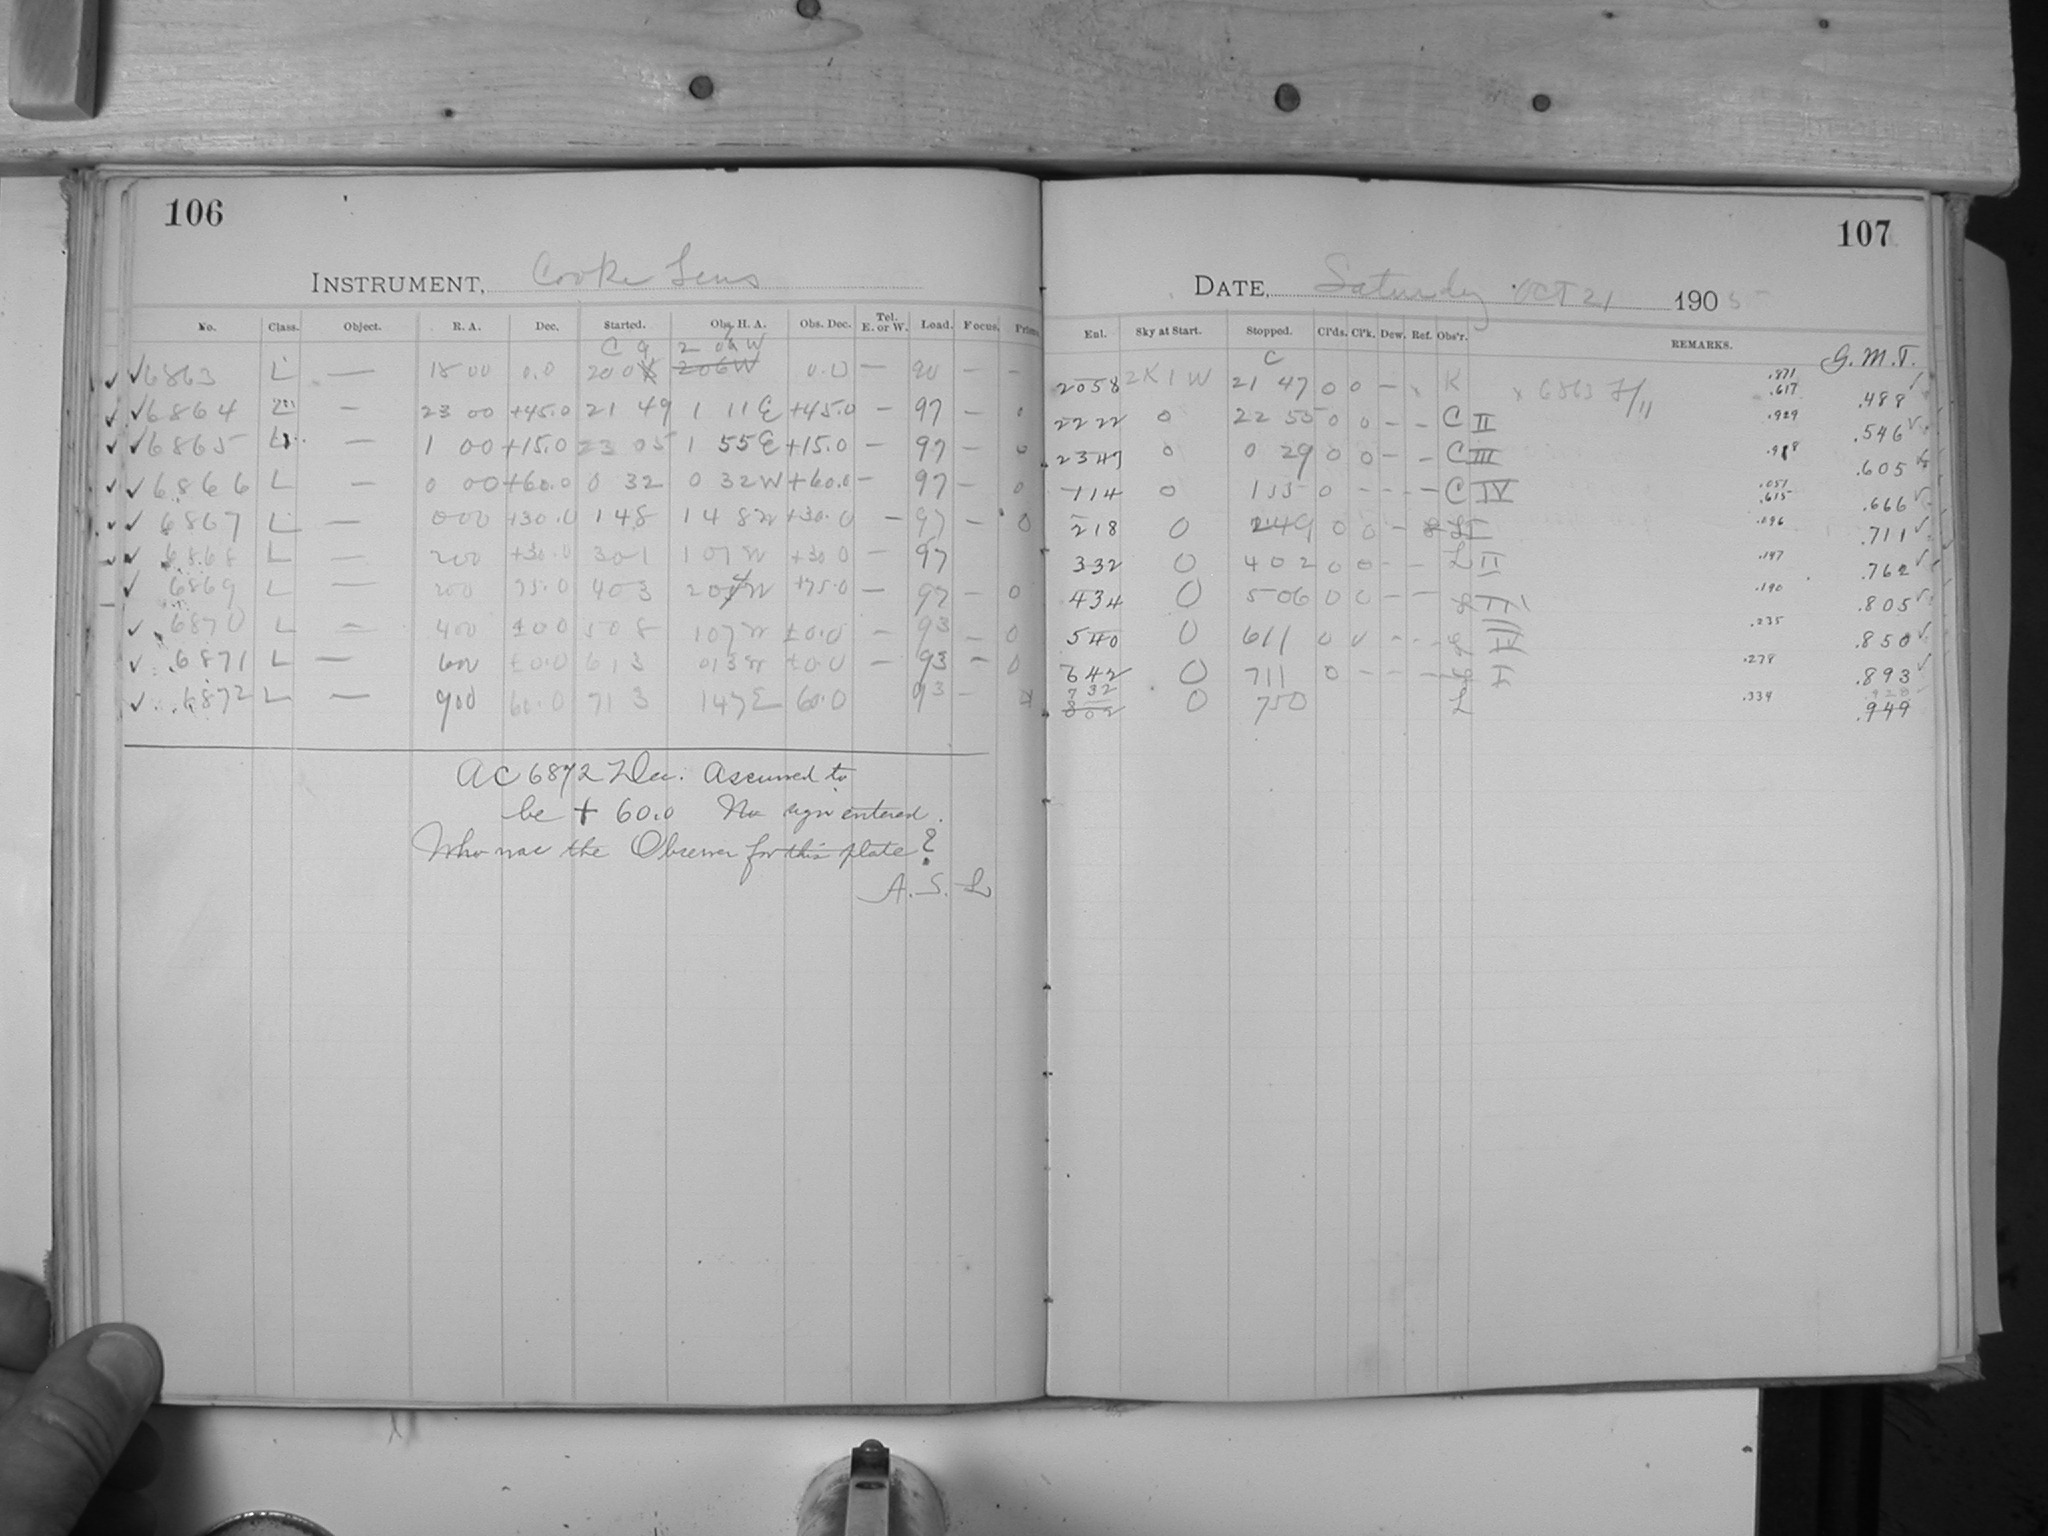 106
INSTRUMENT, Cooke Lens
No. Class. Object. R. A. Dec. Started. Obs. H. A. Obs. Dec. Tel. E. or W. Load. Focus. Prism.
C 9 2 09 W
✓ ✓ 6863 L — 18 00 0.0 20 0 206W 0.0 — 90 — –
✓ ✓ 6864 L — 23 00 +45.0 21 49 1 11 E +45.0 — 97 — 0
✓ ✓ 6865 L — 1 00 +15.0 23 05 1 55 E +15.0 — 97 — 0
✓ ✓ 6866 L — 0 00 +60.0 0 32 0 32 W +60.0 — 97 — 0
✓ ✓ 6867 L — 000 +30.0 1 48 1 48 W +30.0 — 97 — 0
✓ ✓ 6868 L — 200 +30.0 301 1 07 W +30.0 — 97
✓ 6869 L — 200 75.0 403 W +75.0 — 97 — 0
✓ 6870 L — 400 ±0.0 508 107 W ±0.0 — 93 — 0
✓ 6871 L — 600 ±0.0 613 013 W ±0.0 — 93 — 0
✓ 6872 L — 900 60.0 713 147 E 60.0 93 —
AC 6872 Dec. Assumed to
be + 60.0 No sign entered.
Who was the Observer for this plate?
A. S. L
107
DATE, Saturday Oct 21 1905
Enl. Sky at Start. Stopped. Cl'ds. Cl'k. Dew. Ref. Obs'r. REMARKS. G.M.T.
C
2058 2K1W 21 47 0 0 – x K x 6863 F/11 .871 .617 .488 ✓
2222 0 22 55 0 0 – – C II .929 .546 ✓
2347 0 0 29 0 0 – – C III .605
114 0 135 0 – – – C IV .051 .615 .666 ✓
218 0 249 0 0 – L I .096 .711 ✓
332 0 402 0 0 – – L II .147 .762 ✓
434 0 506 0 0 – – L III .190 .805 ✓
540 0 611 0 0 – – L IV .235 .850 ✓
642 0 711 0 – – – L I .278 .893 ✓
732 .928
802 0 750 L .334 .949